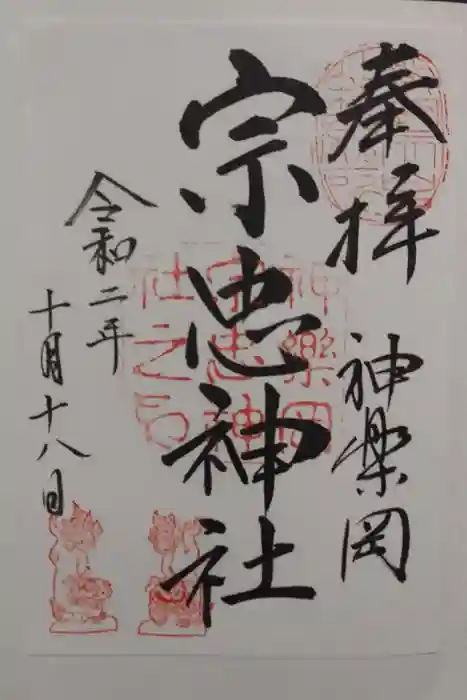 奉拝
神楽岡
宗忠神社
令和二年
十月十八日
神樂岡
宗忠神
社之印